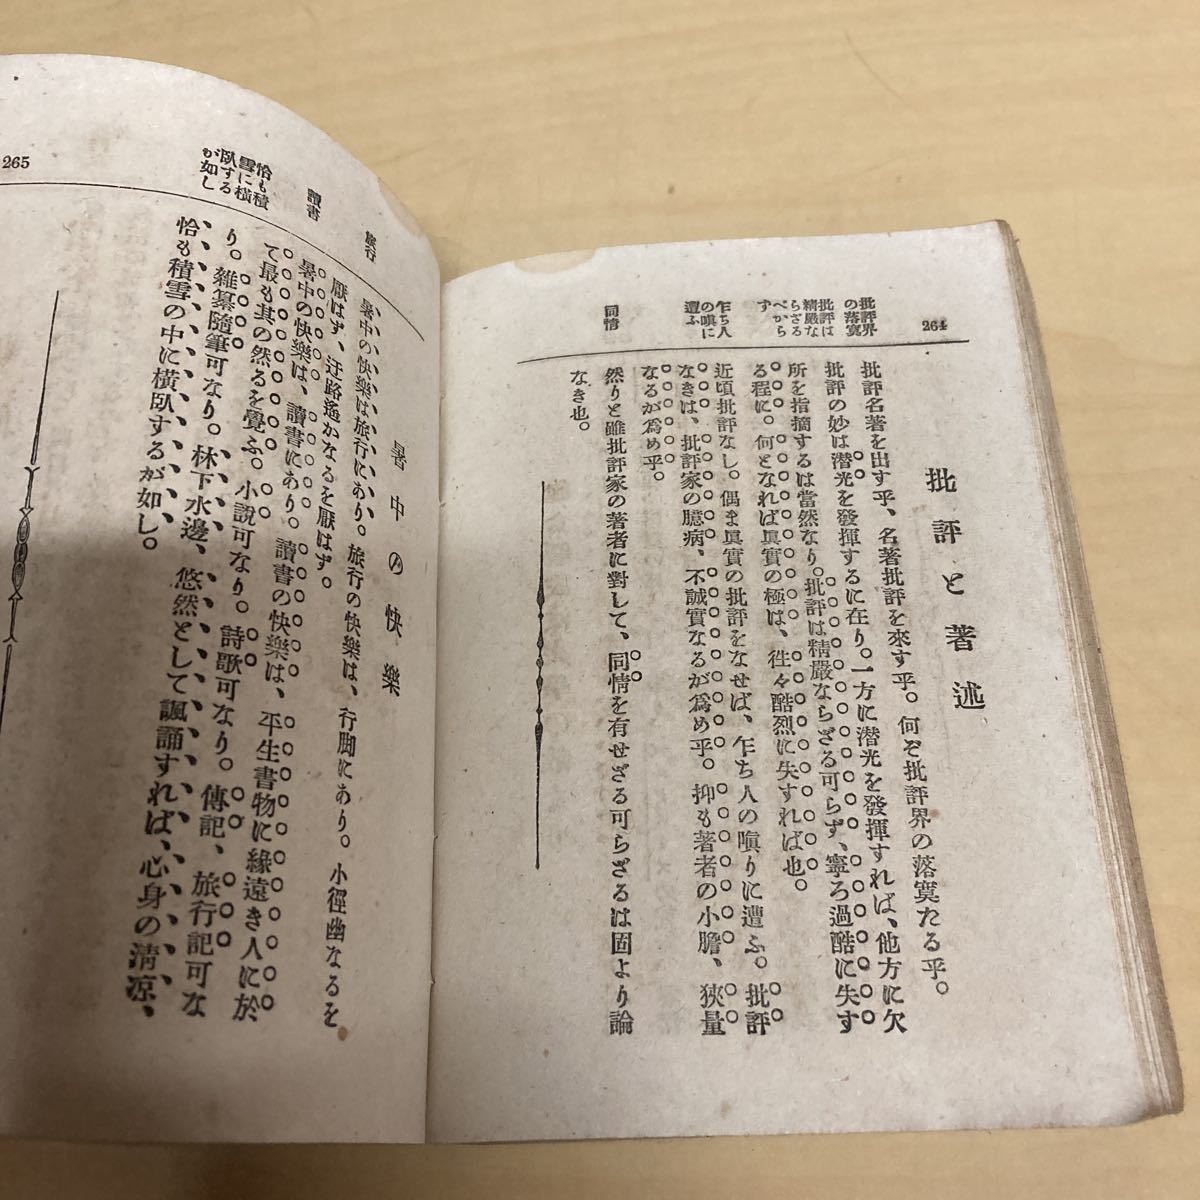 264
批評界の落寞
批評は精嚴ならざるべからず
乍ち人の嗔に遭ふ
同情
批評と著述
批評名著を出す乎、名著批評を來す乎。何ぞ批評界の落寞たる乎。
批評の妙は潜光を發揮するに在り。一方に潜光を發揮すれば、他方に欠
所を指摘するは當然なり。批評は精嚴ならざる可らず、寧ろ過酷に失す
る程に。何となれば眞實の極は、徃々酷烈に失すれば也。
近頃批評なし。偶ま眞實の批評をなせば、乍ち人の嗔りに遭ふ。批評
なきは、批評家の臆病、不誠實なるが爲め乎。抑も著者の小膽、狹量
なるが爲め乎。
然りと雖批評家の著者に對して、同情を有せざる可らざるは固より論
なき也。
265
旅行
讀書
恰も積雪に橫臥するが如し
暑中の快樂
暑中の快樂は旅行にあり。旅行の快樂は、行脚にあり。小徑幽なるを
厭はず、迂路遙かなるを厭はず。
暑中の快樂は、讀書にあり。讀書の快樂は、平生書物に緣遠き人に於
て最も其の然るを覺ふ。小説可なり。詩歌可なり。傳記、旅行記可な
り。雜纂隨筆可なり。林下水邊、悠然として諷誦すれば、心身の淸凉、
恰も積雪の中に橫臥するが如し。